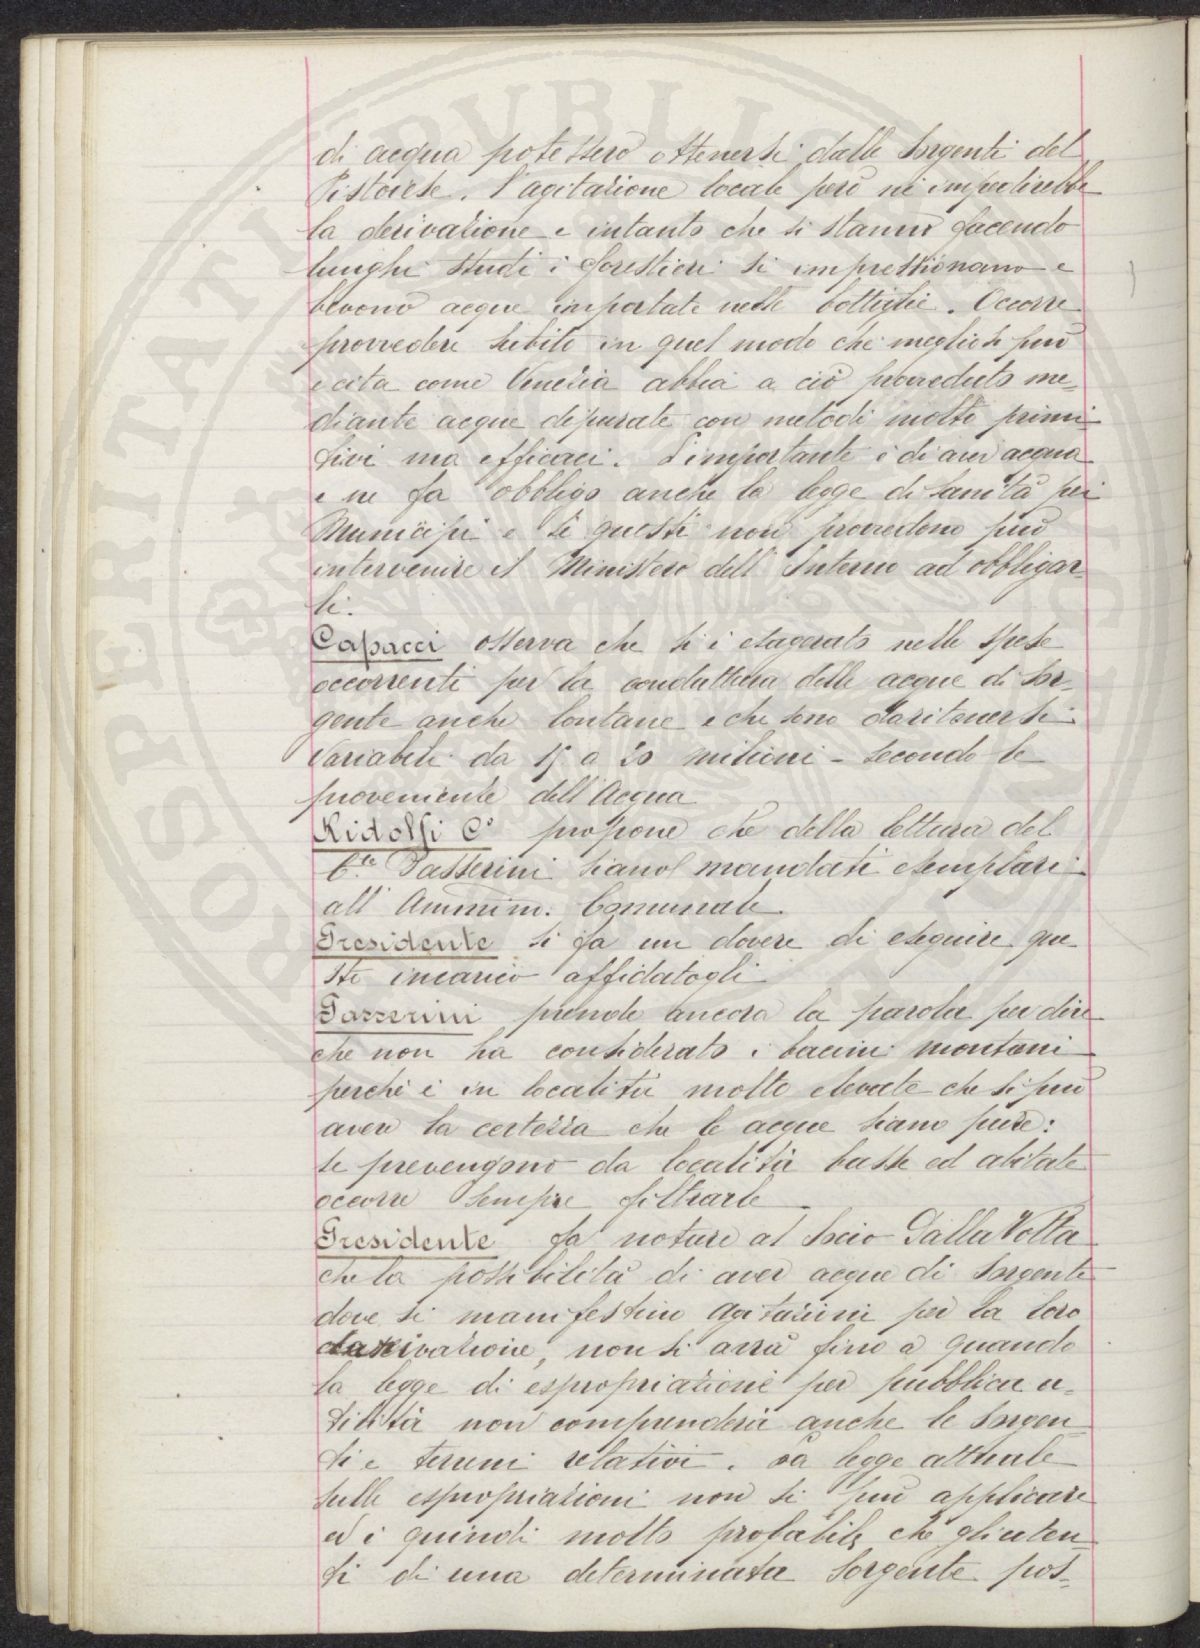 di acqua potessero ottenersi dalle Sorgenti del
Pistoiese. L'agitazione locale però ne impedirebbe
la derivazione e intanto che si stanno facendo
lunghi studi i forestieri si impressionano e
bevono acque importate nelle bottiglie. Occorre
provvedere subito in quel modo che meglio si può
e cita come Venezia abbia a ciò provveduto me-
diante acque depurate con metodi molto primi-
tivi ma efficaci. L'importante è di aver acqua
e ne fa obbligo anche la legge di Sanità pei
Municipi e se questi non provvedono può
intervenire il Ministero dell'Interno ad obbligar-
li.
Capacci osserva che si è esagerato nelle spese
occorrenti per la conduttura delle acque di Sor-
gente anche lontane e che sono da ritenersi
variabili da 15 a 20 milioni - secondo le
proveniente dell'Acqua
Ridolfi C° propone che della lettura del
C.te Passerini siano mandati esemplari
all'Ammim. Comunale
Presidente si fa un dovere di eseguire que
sto incarico affidatogli
Passerini prende ancora la parola per dire
che non ha considerato i bacini montani
perchè è in località molto elevate che si può
avere la certezza che le acque siano pure:
se prevengono da località basse ed abitate
occorre sempre filtrarle
Presidente fa notare al Socio Dalla Volta
che la possibilità di aver acque di Sorgente
dove si manifestino agitazioni per la loro
derivazione, non si avrà fino a quando
la legge di espropriazione per pubblica u-
tilità non comprenderà anche le Sorgen-
ti e terreni relativi. La legge attuale
sulle espropriazioni non si può applicare
ed è quindi molto probabile che gli uten-
ti di una determinata Sorgente pos-
PROSPERITATI PVBLICAE